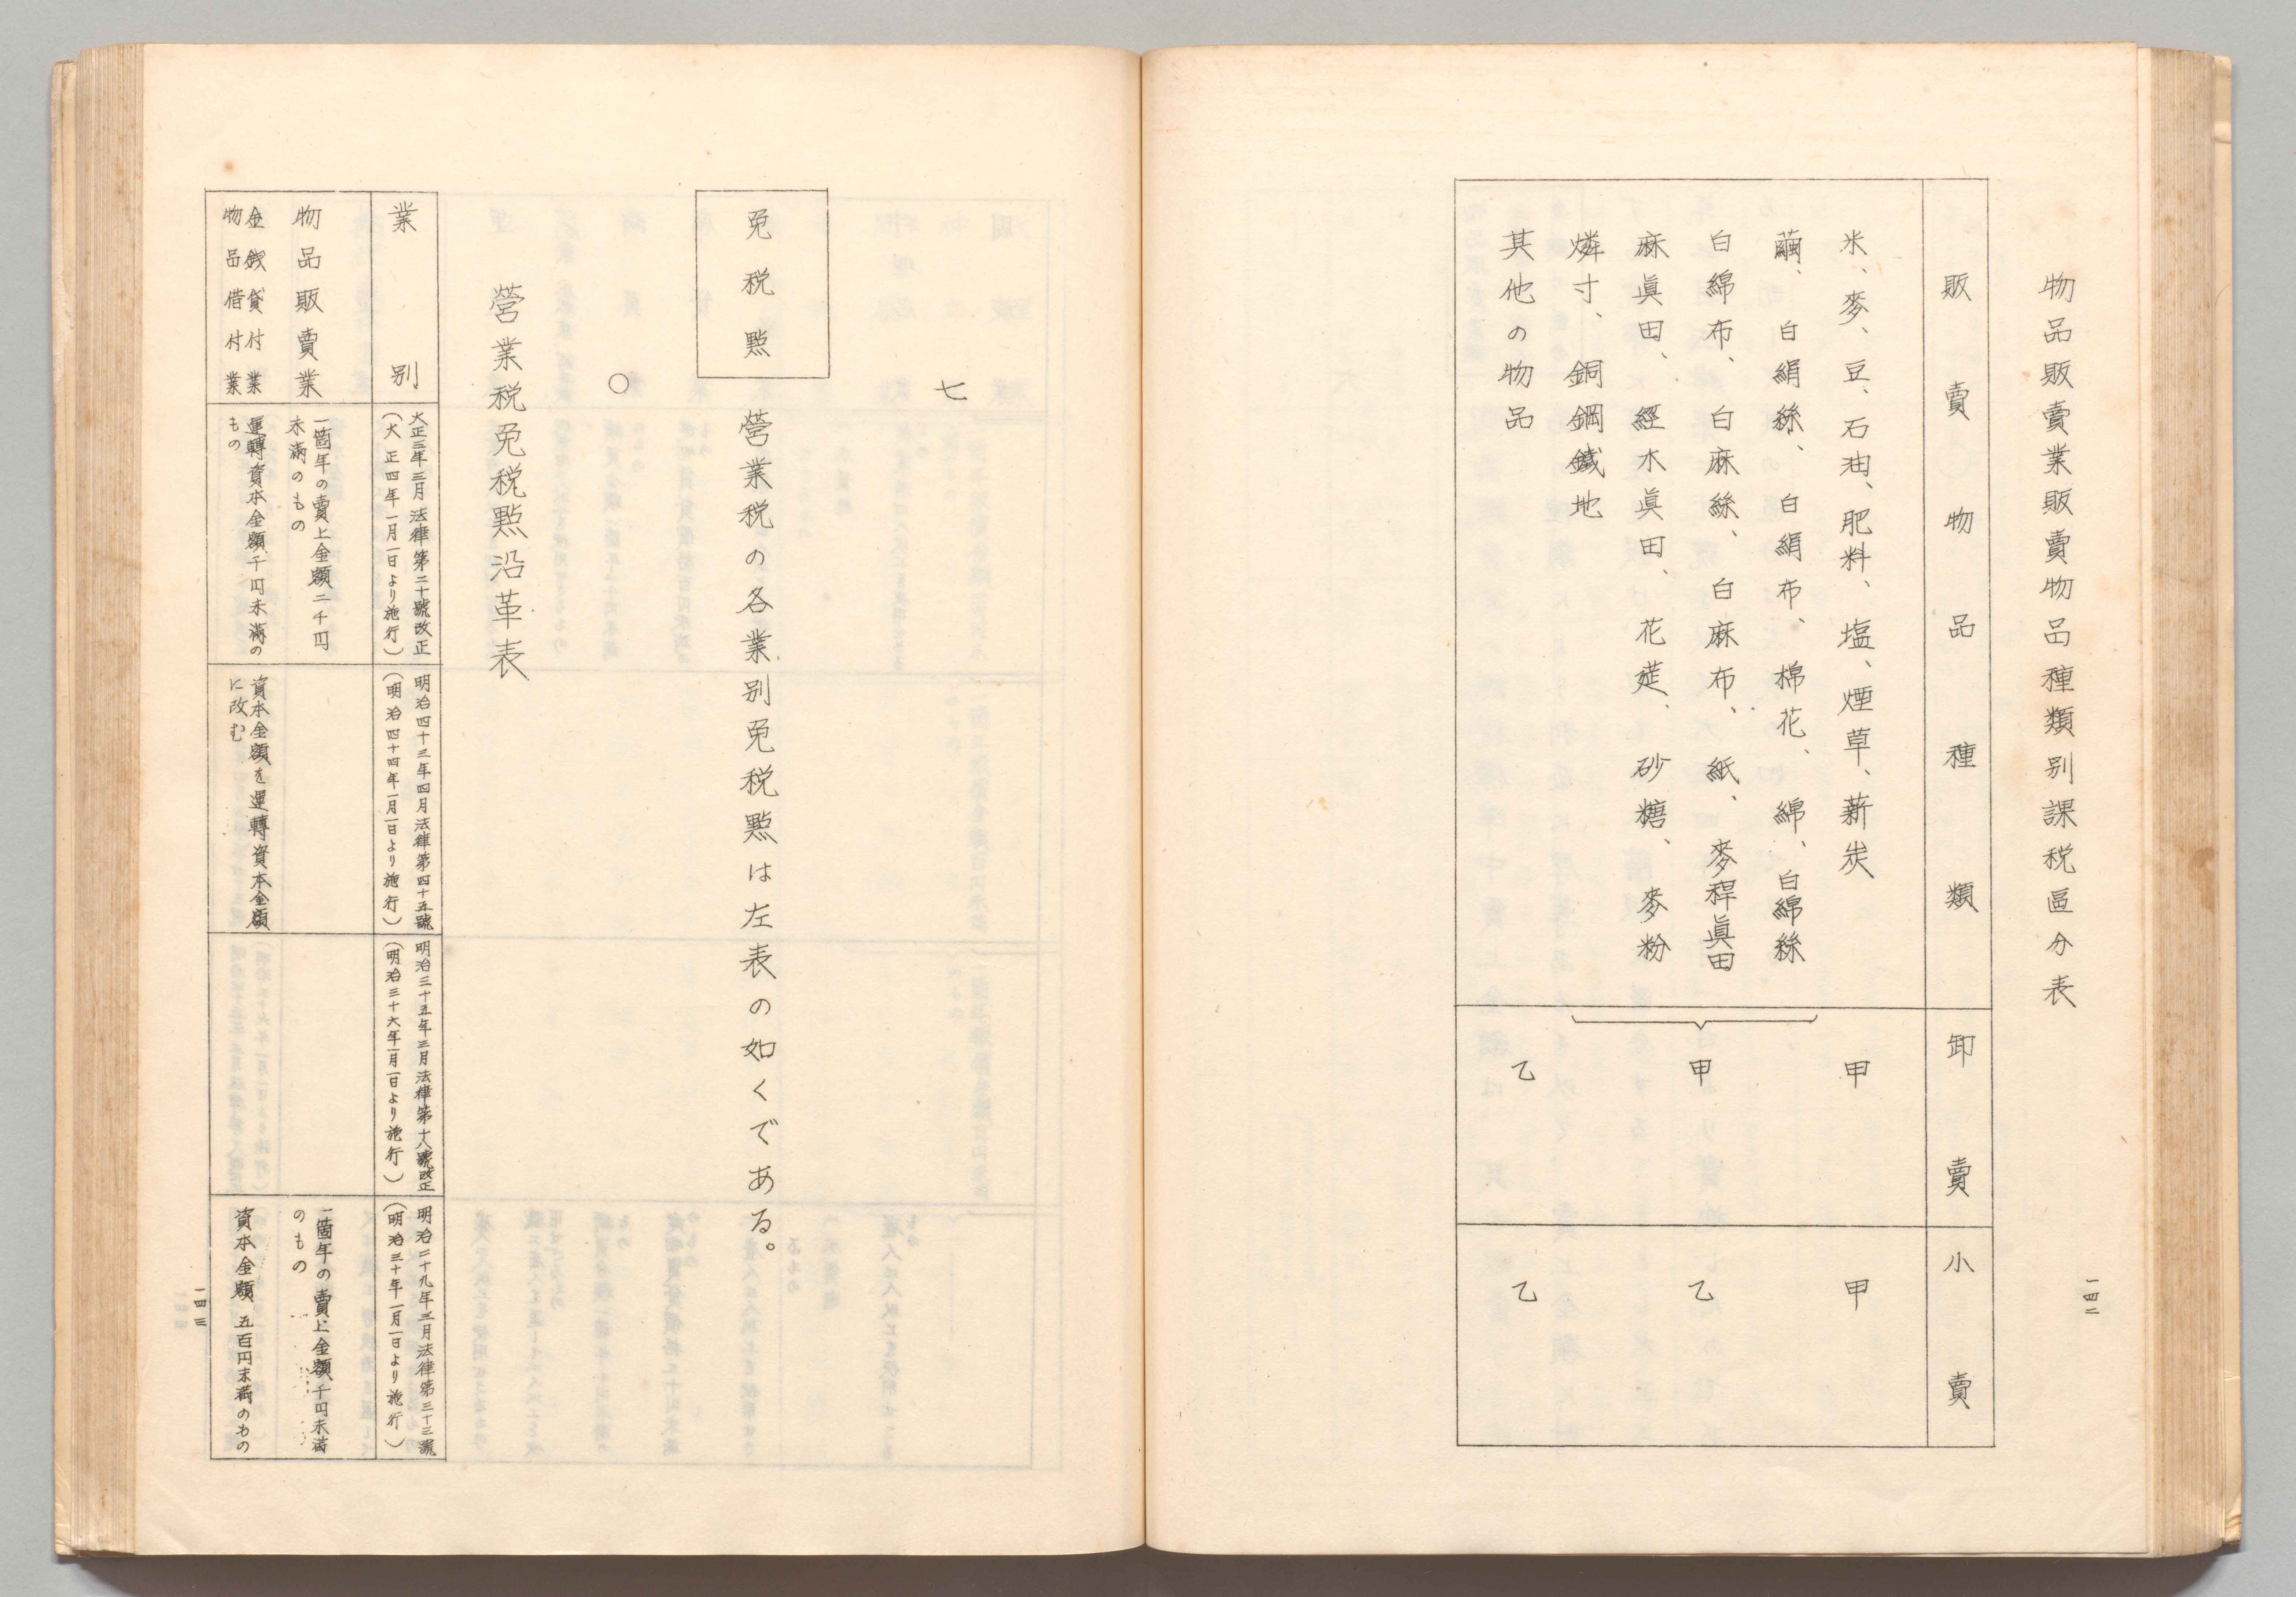 物品販賣業販賣物品種類別課税區分表
販賣物品種類
卸賣
小賣
米、麥、豆、石油、肥料、塩、煙草、薪炭
甲
甲
繭、白絹絲、白絹布、棉花、綿、白綿絲
白綿布、白麻絲、白麻布、紙、麥稈眞田
麻眞田、經木眞田、花莚、砂糖、麥粉
燐寸、銅鋼鐵地
甲
乙
其他の物品
乙
乙
一四二
七
免税點
營業税の各業別免税點は左表の如くである。
○
營業税免税點沿革表
業別
大正三年三月法律第二十號改正
(大正四年一月一日より施行)
明治四十三年四月法律第四十五號
(明治四十四年一月一日より施行)
明治三十五年三月法律第十八號改正
(明治三十六年一月一日より施行)
明治二十九年三月法律第三十三號
(明治三十年一月一日より施行)
物品販賣業
一箇年の賣上金額二千円
未滿のもの
一箇年の賣上金額千円未滿
のもの
金錢貸付業
物品借付業
運轉資本金額千円未滿の
もの
資本金額を運轉資本金額
に改む
資本金額五百円未滿のもの
一四三